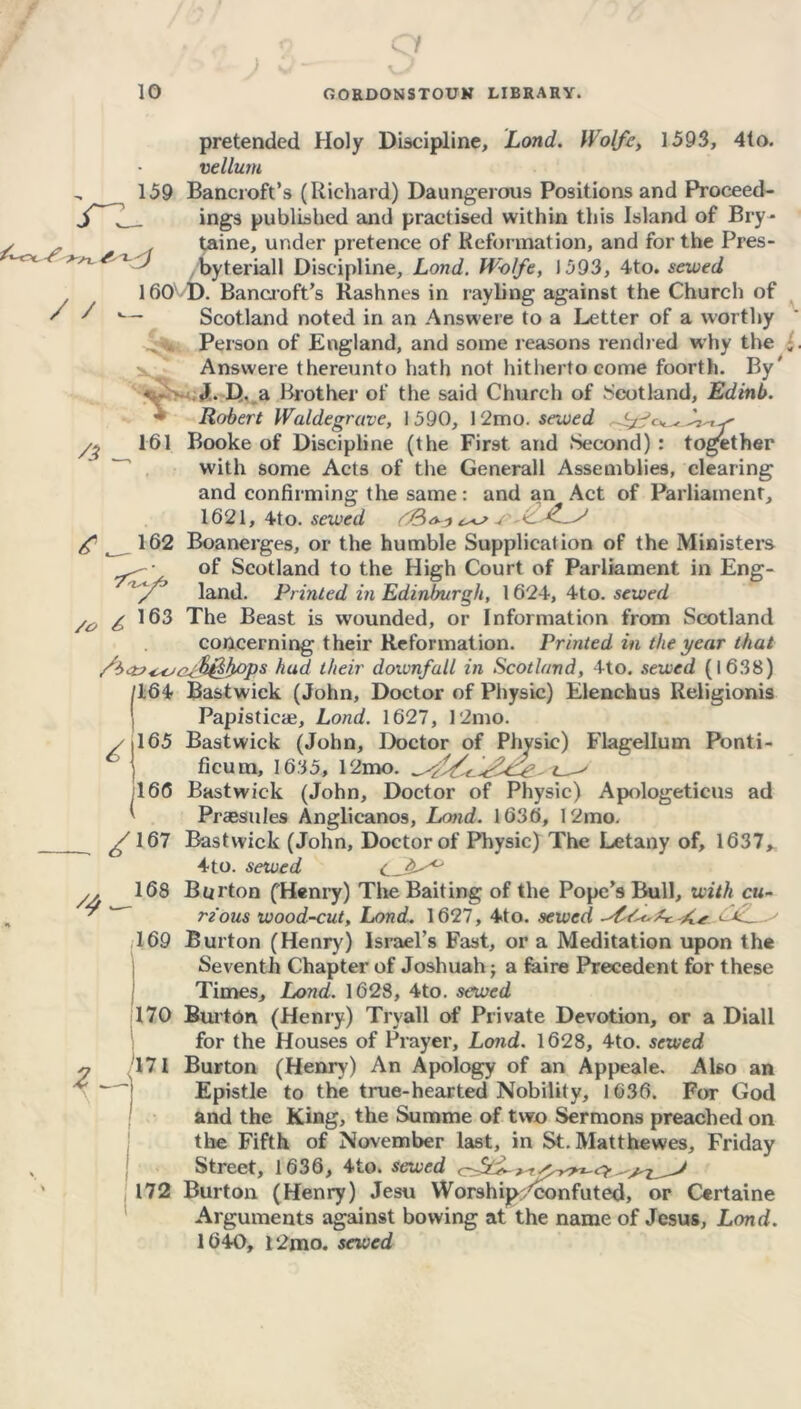 10 GORDONSTOUN LIBRARY.
pretended Holy Discipline, Lond. Wolfe, 1593, 4to.
vellum
159 Bancroft's (Richard) Daungerous Positions and Proceed-
ings published and practised within this Island of Bry-
taine, under pretence of Reformation, and for the Pres-
byteriall Discipline, Lond. Wolfe, 1593, 4to. sewed
160 D. Bancroft's Rashnes in rayling against the Church of
Scotland noted in an Answere to a Letter of a worthy
Person of England, and some reasons rendred why the
Answere thereunto hath not hitherto come foorth. By
J. D. a Brother of the said Church of Scotland, Edinb.
Robert Waldegrave, 1590, 12mo. sewed
161 Booke of Discipline (the First and Second) : together
with some Acts of the Generall Assemblies, clearing
and confirming the same: and an Act of Parliament,
1621, 4to. sewed
162 Boanerges, or the humble Supplication of the Ministers
of Scotland to the High Court of Parliament in Eng-
land. Printed in Edinburgh, 1624, 4to. sewed
163 The Beast is wounded, or Information from Scotland
concerning their Reformation. Printed in the year that
Bishops had their downfall in Scotland, 4to. sewed (1638)
164 Bastwick (John, Doctor of Physic) Elenchus Religionis
Papisticæ, Lond. 1627, 12mo.
165 Bastwick (John, Doctor of Physic) Flagellum Ponti-
ficum, 1635, 12mo.
166 Bastwick (John, Doctor of Physic) Apologeticus ad
Præsules Anglicanos, Lond. 1636, 12mo.
167 Bastwick (John, Doctor of Physic) The Letany of, 1637,
4to. sewed
168 Burton (Henry) The Baiting of the Pope's Bull, with cu-
rious wood-cut, Lond. 1627, 4to. sewed
169 Burton (Henry) Israel's Fast, or a Meditation upon the
Seventh Chapter of Joshuah; a faire Precedent for these
Times, Lond. 1628, 4to. sewed
170 Burton (Henry) Tryall of Private Devotion, or a Diall
for the Houses of Prayer, Lond. 1628, 4to. sewed
171 Burton (Henry) An Apology of an Appeale. Also an
Epistle to the true-hearted Nobility, 1636. For God
and the King, the Summe of two Sermons preached on
the Fifth of November last, in St. Matthewes, Friday
Street, 1636, 4to. sewed
172 Burton (Henry) Jesu Worship confuted, or Certaine
Arguments against bowing at the name of Jesus, Lond.
1640, 12mo. sewed